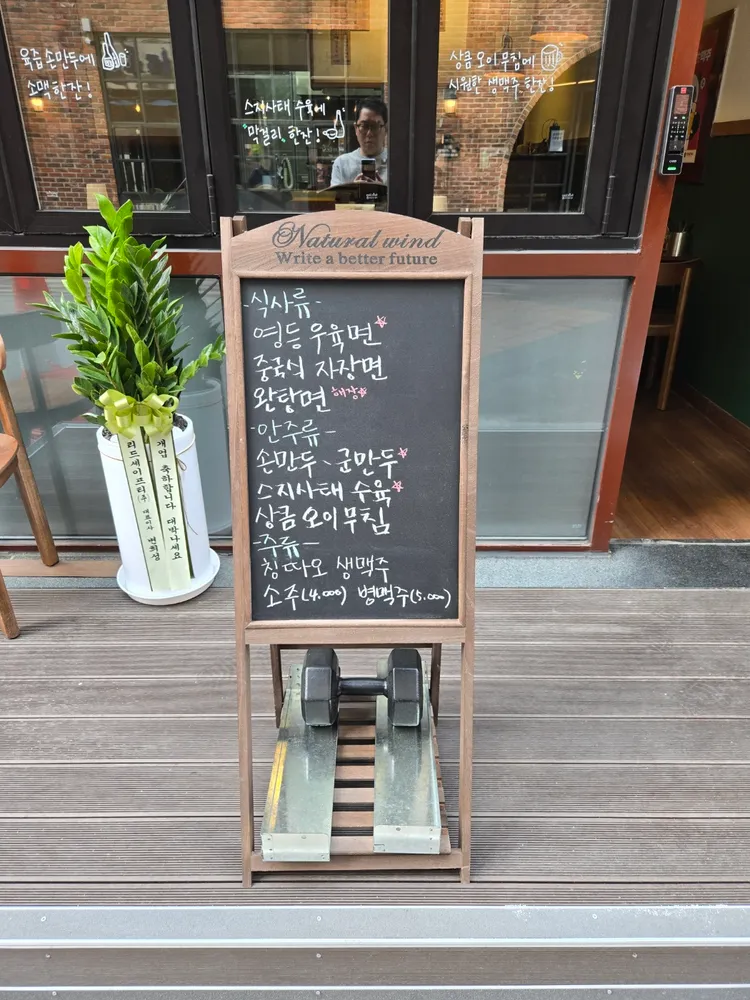 육즙 손만두에
소맥 한잔!
스지사태 수육에
막걸리 한잔!
상큼 오이무침에
시원한 생맥주 한잔!
Natural wind
Write a better future
-식사류-
영등우육면
중국식 자장면
완탕면 해장
-안주류-
손만두、군만두
스지사태 수육
상큼 오이무침
-주류-
칭따오 생맥주
소주(4.000) 병맥주(5.000)
개업 축하합니다 대박나세요
리드세이프리(주) 대표이사 변희성